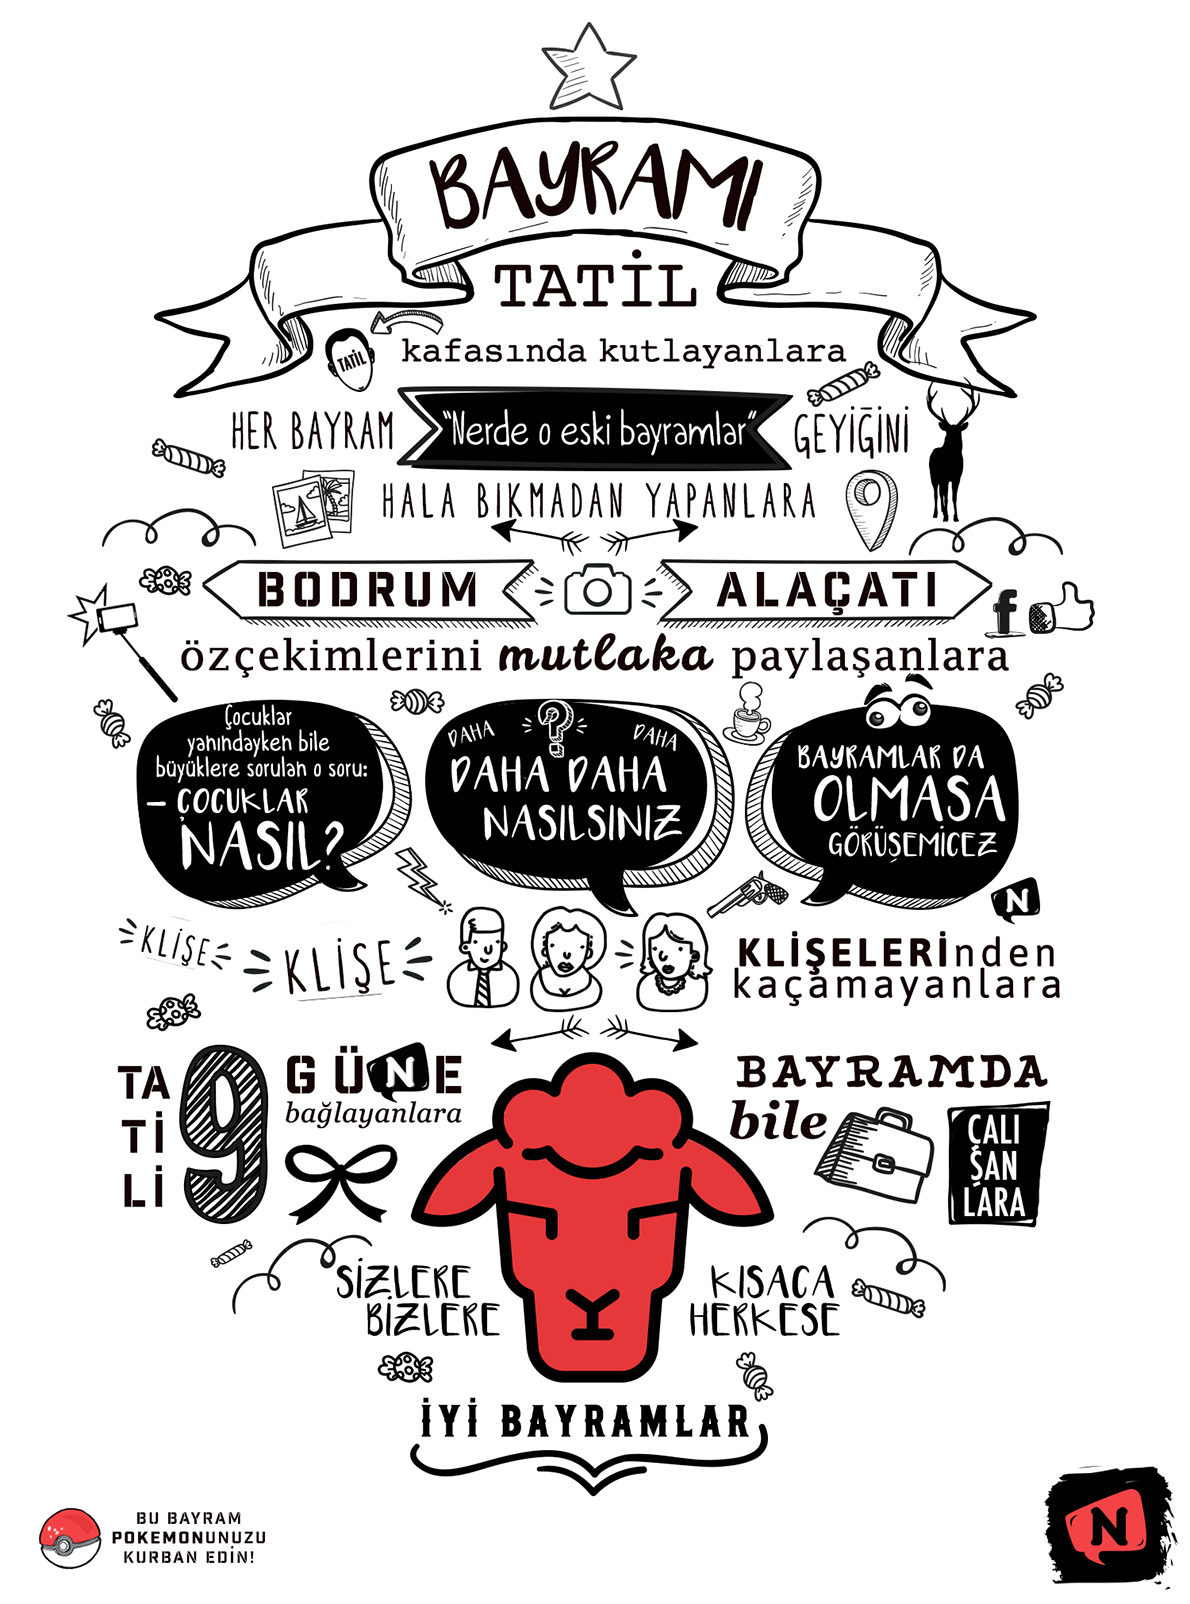 BAYRAMI
TATİL
kafasında kutlayanlara
TATİL
HER BAYRAM "Nerde o eski bayramlar" GEYİĞİNİ
HALA BIKMADAN YAPANLARA
BODRUM ALAÇATI
f
özçekimlerini mutlaka paylaşanlara
Çocuklar
yanındayken bile
büyüklere sorulan o soru:
– ÇOCUKLAR
NASIL?
DAHA ? DAHA
DAHA DAHA
NASILSINIZ
BAYRAMLAR DA
OLMASA
GÖRÜŞEMİCEZ
N
KLİŞE KLİŞE
KLİŞELERİnden
kaçamayanlara
TA
Tİ
Lİ
9
GÜNE
bağlayanlara
BAYRAMDA
bile
ÇALI
ŞAN
LARA
SİZLERE
BİZLERE
KISACA
HERKESE
İYİ BAYRAMLAR
BU BAYRAM
POKEMONUNUZU
KURBAN EDİN!
N